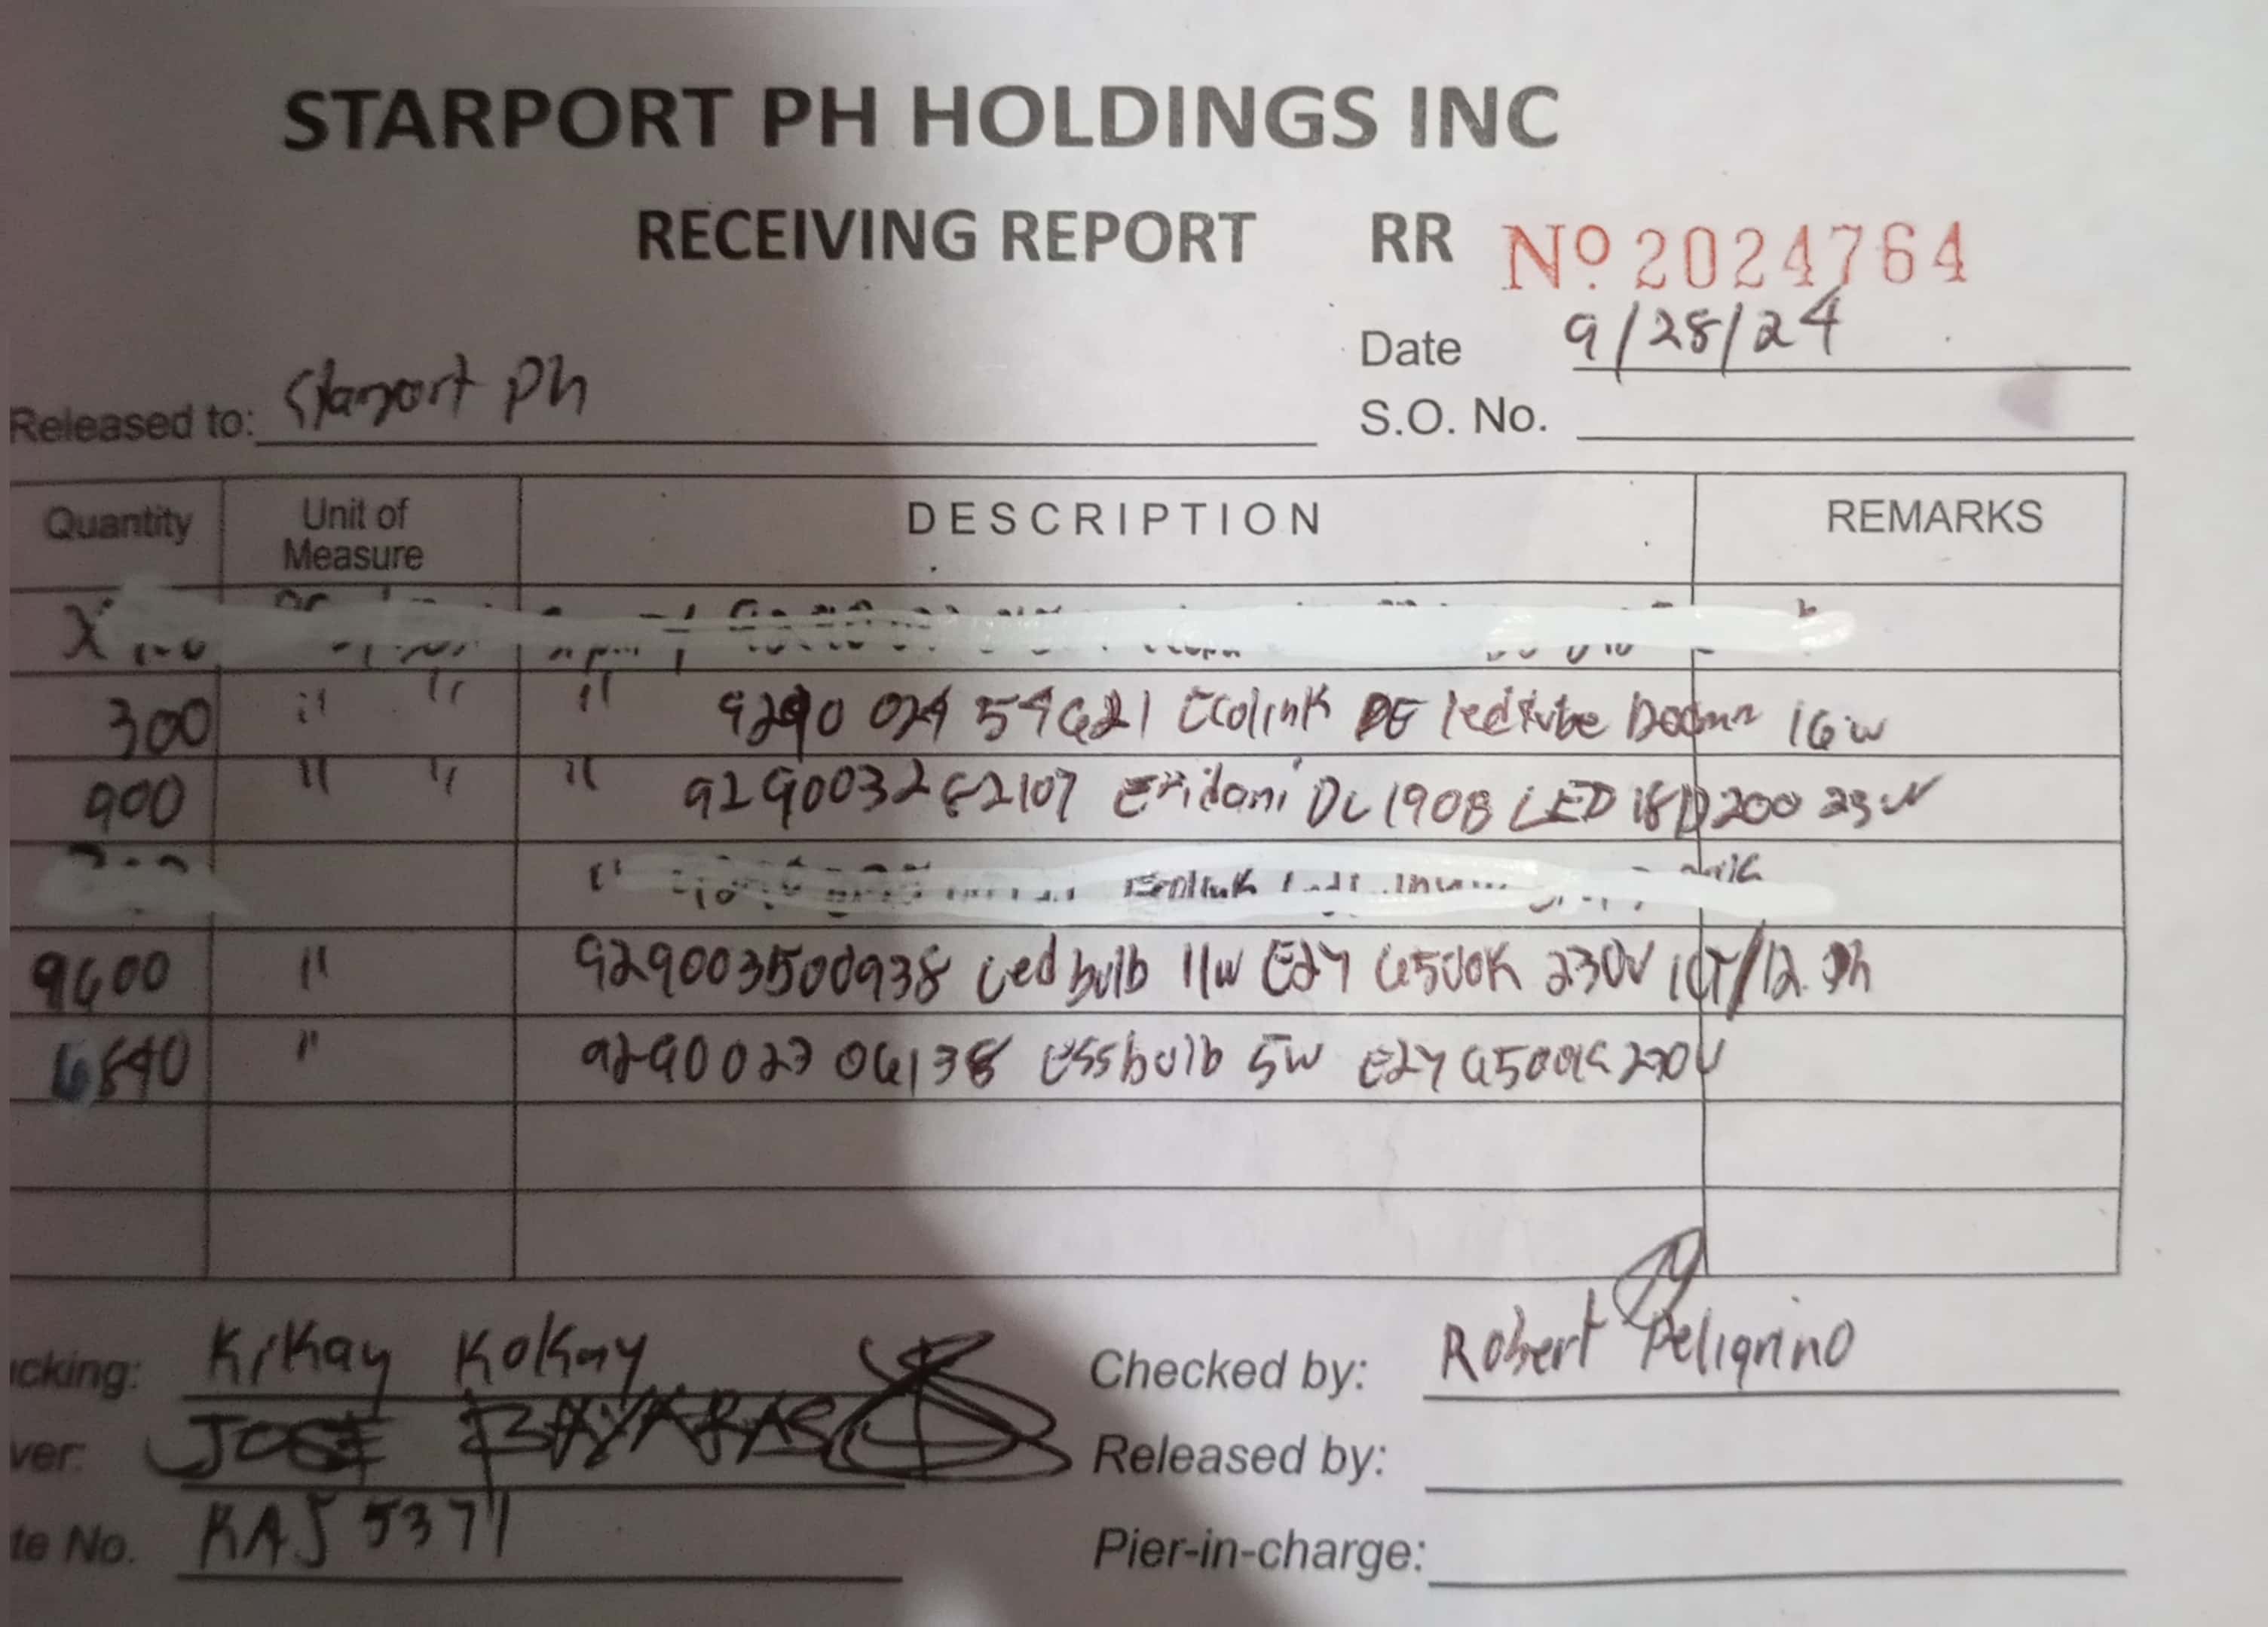 STARPORT PH HOLDINGS INC
RECEIVING REPORT RR Nº 2024764
Date 9/28/24
Released to: Starport Ph
S.O. No.
Quantity Unit of Measure DESCRIPTION REMARKS
X
300 " " " 9290 024 54621 Ecolink DE ledtube 16w
900 " " " 929003282107 Eridani DL190B LED 18D200 23W
" Ecolink
9600 " 929003500938 Led bulb 11w E27 6500K 230V 1CT/12 Ph
6840 " 929002306138 essbulb 5w E27 6500K 230V
cking: Kikay Kokay
Checked by: Robert Peligrino
ver: JOSE BAYABAS
Released by:
te No. KAJ 5371
Pier-in-charge: